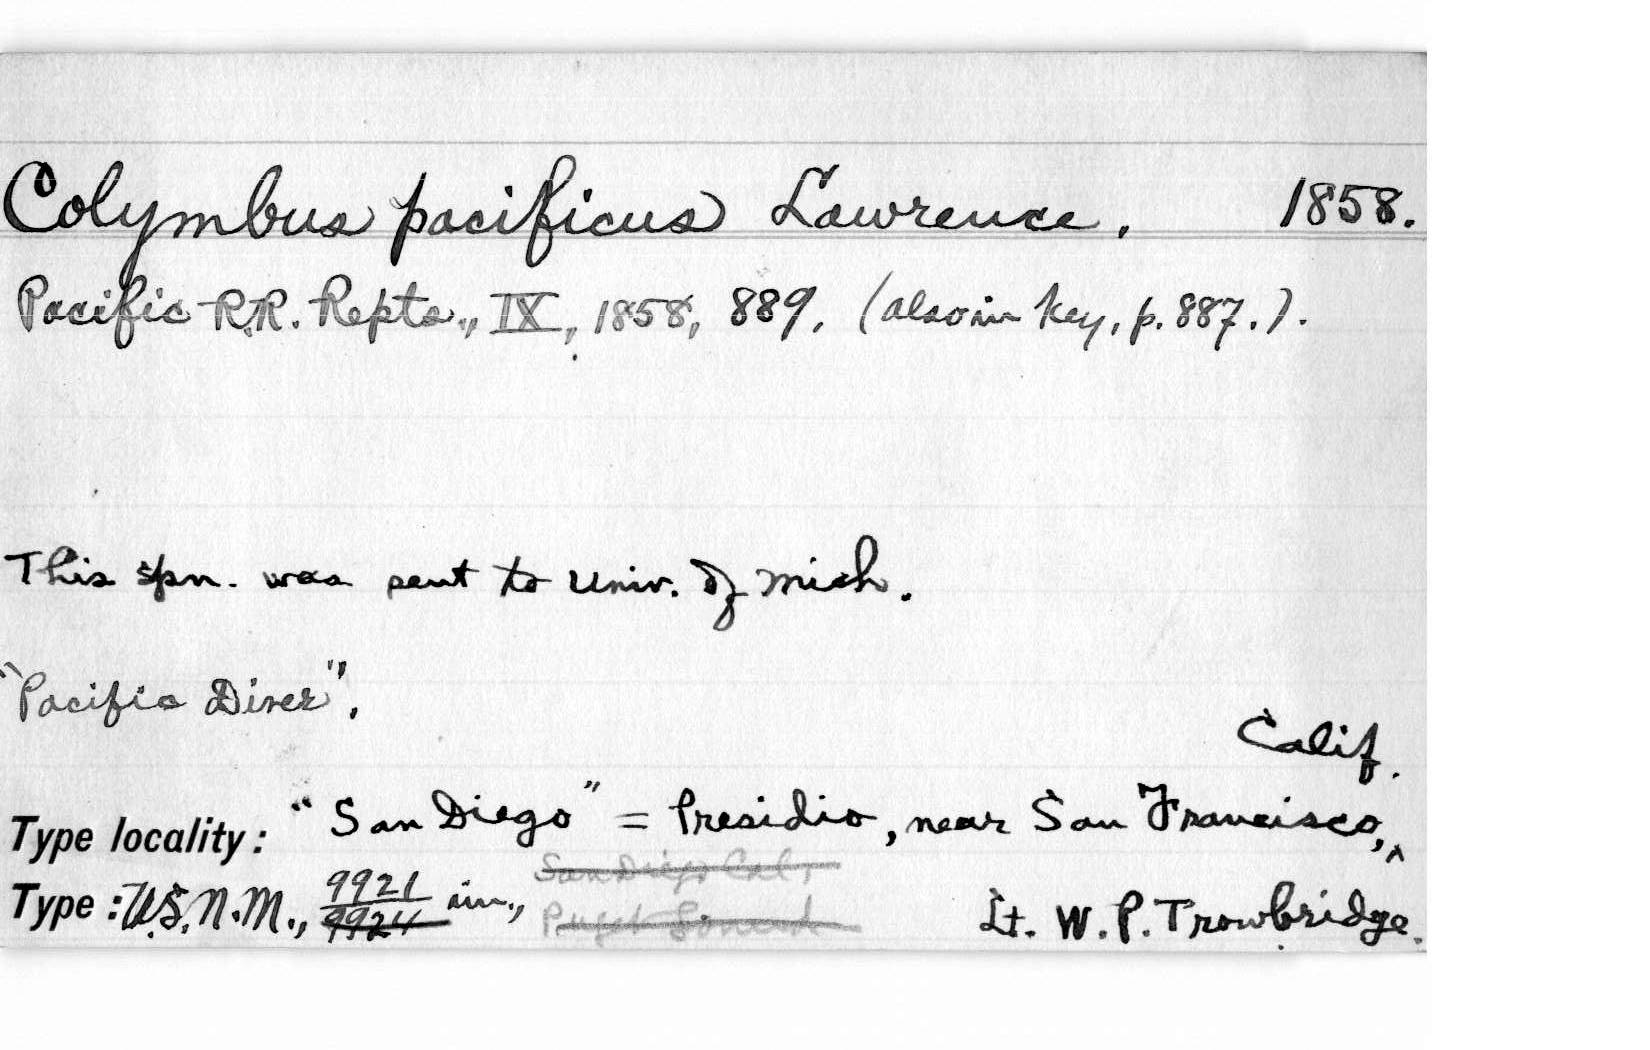 Colymbus pacificus Lawrence. 1858.
Pacific R.R. Repts., IX, 1858, 889. (also in key, p. 887.).
This spn. was sent to Univ. of Mich.
"Pacific Diver".
Calif.
Type locality: "San Diego" = Presidio, near San Francisco, ^
San Diego Cal.
Type: U.S.N.M., 9921 im., Lt. W. P. Trowbridge.
9924 Puget Sound